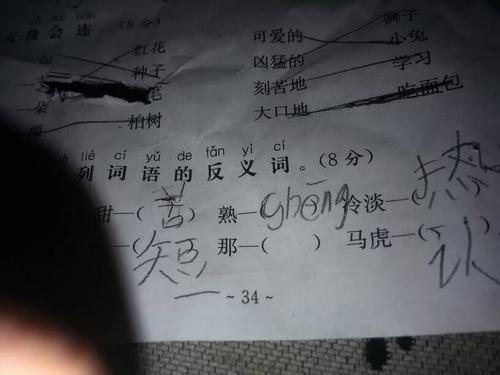 huì lián
我会连。(8分)
红花 可爱的 狮子
种子 凶猛的 小兔
笔 刻苦地 学习
朵 柏树 大口地 吃面包
liè cí yǔ de fǎn yì cí
列词语的反义词。(8分)
甜—(苦) 熟—(shēng) 冷淡—(热
—(短) 那—( ) 马虎—(认
~34~